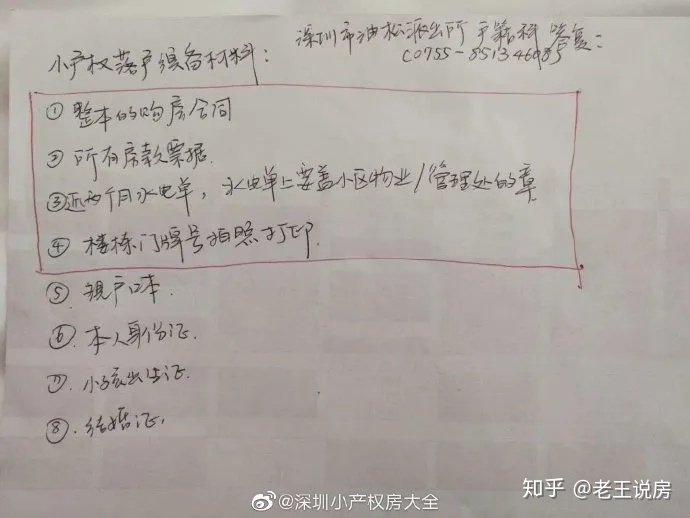 小产权落户须备材料：
深圳市油松派出所 户籍科 答复：
(0755-85134698)
① 整本的购房合同
② 所有房款票据.
③ 近两个月水电单，水电单上要盖小区物业/管理处的章
④ 楼栋门牌号拍照打印.
⑤ 户口本.
⑥. 本人身份证.
⑦. 小孩出生证.
⑧. 结婚证.
@深圳小产权房大全
知乎 @老王说房